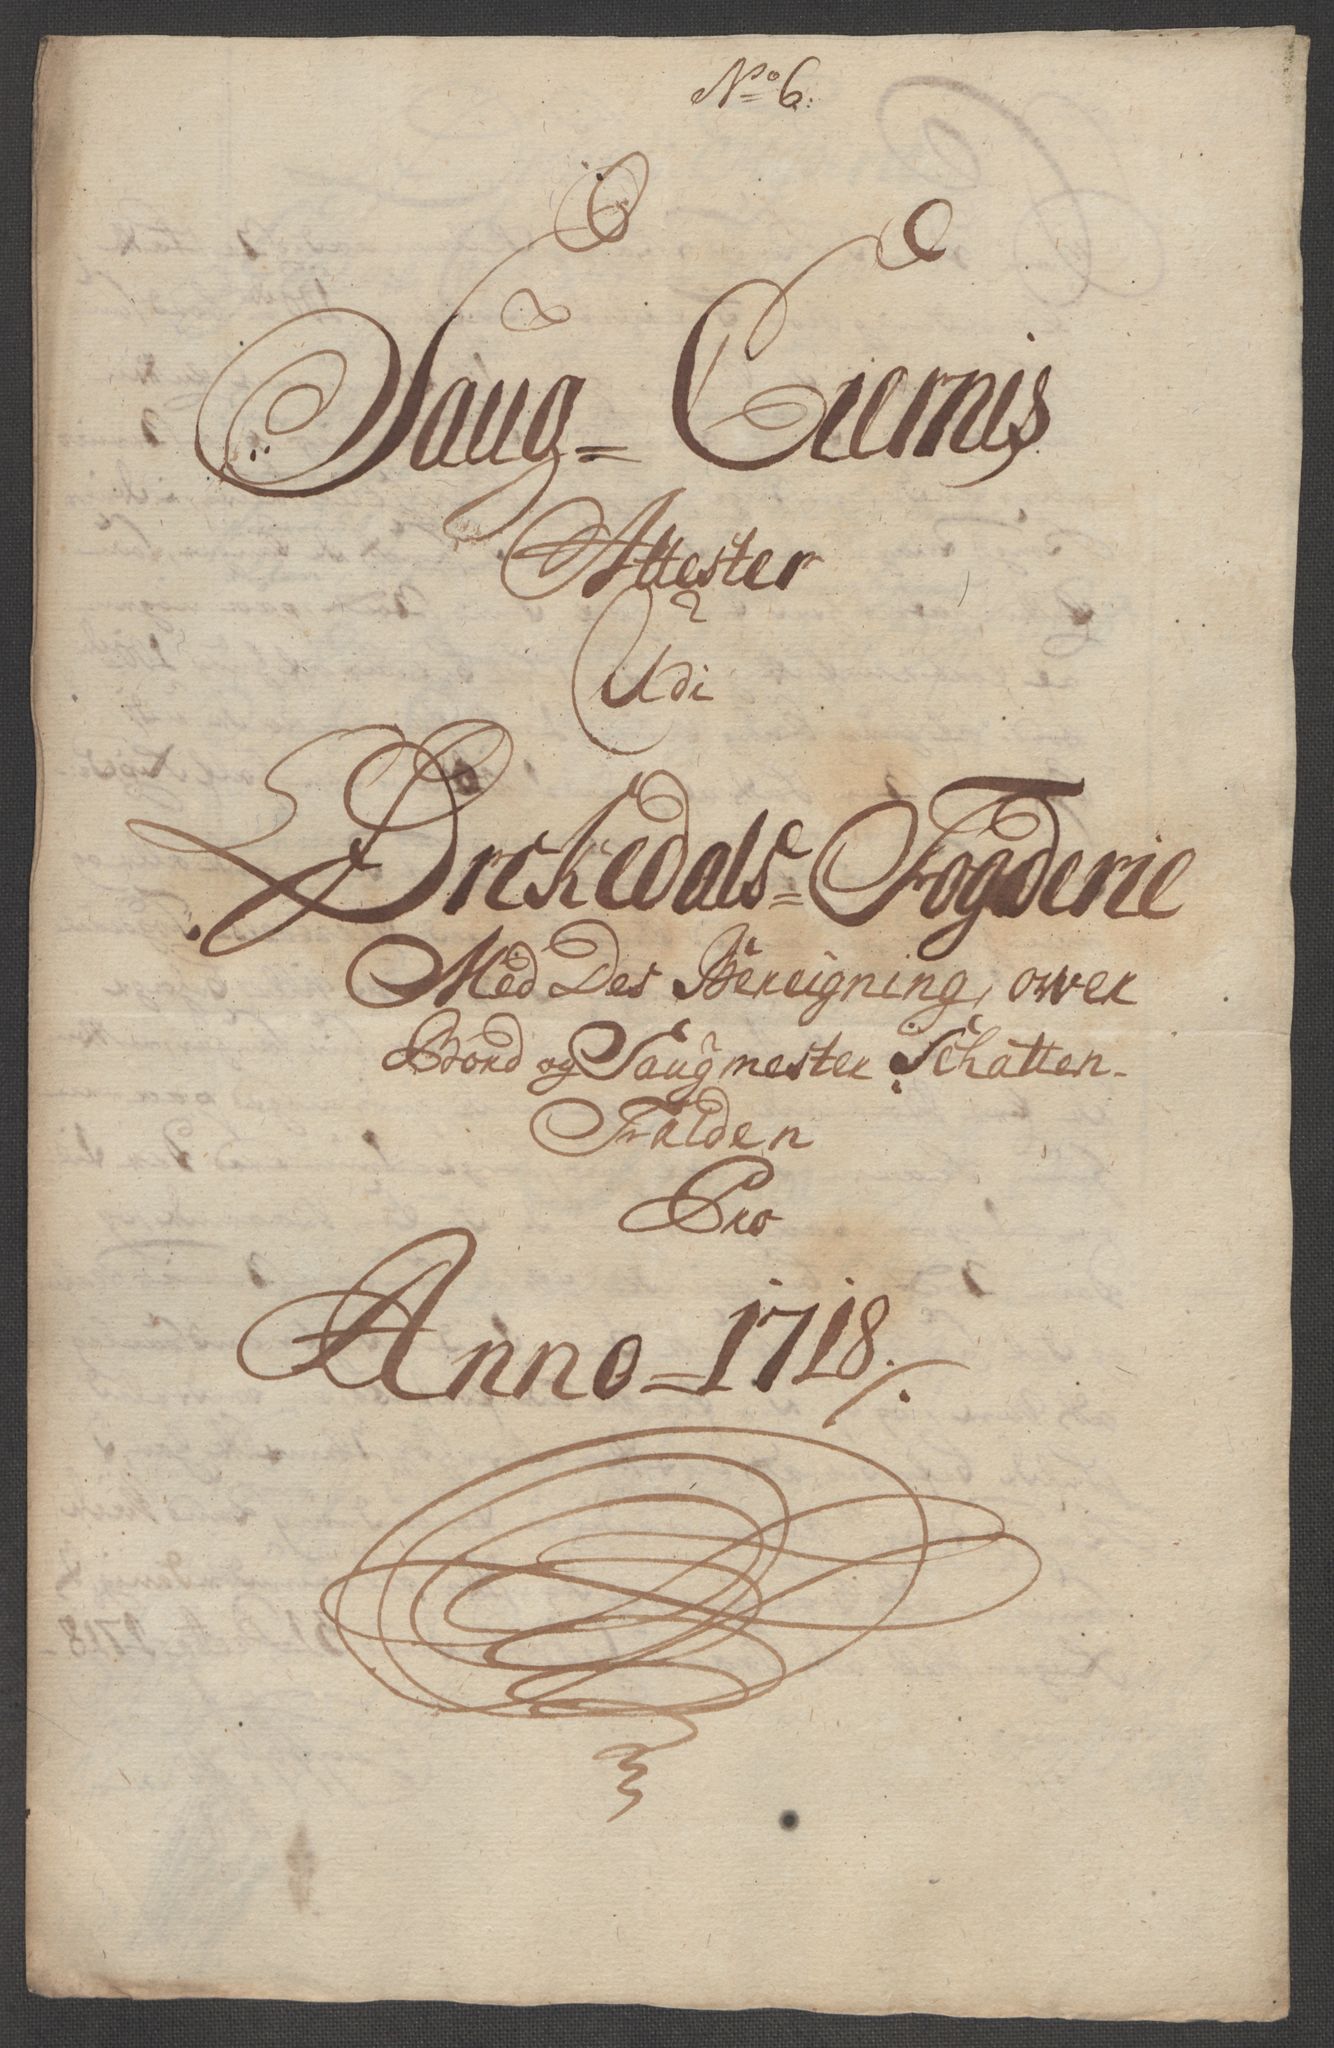 No 6.
Saug= Ciernis
Attester
Udi
Orckedals= Fogderie
Med Des Bereigning, over
Bord og Saugmester Schatten-
Falden
Pro
Anno = 1718.